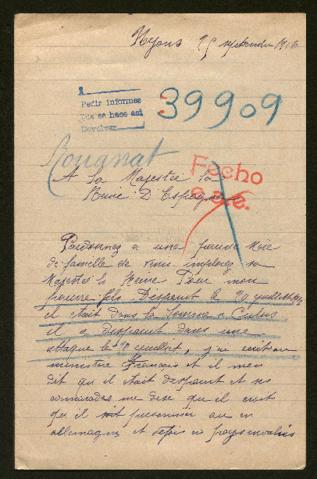 septembre 1916
1
Pedir informes
que se hace asi
Devolver
39909
Rougnat
Fecho
A Sa Majestée la
Reine D Espagne
Pardonnez a une pauvre Mère
de famille de venir implorez sa
Majestés la Reine Pour mon
pauvre fils Disparut le 20 juillet 1916
il était dans la Somme a
il a disparut dans une
attaque le 20 juillet, j ai écrit au
ministre Français et il mon
dit qu il était disparut et ses
comarades me dise que il croit
qu il soit prisonnier ou en
allemagne et depuis en pays envahis